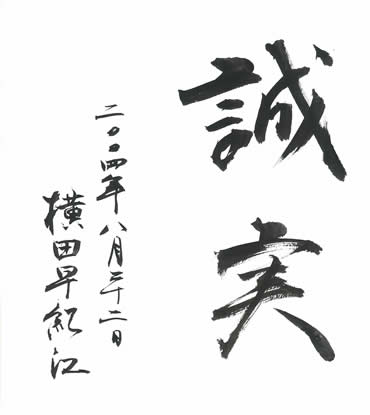 誠実
二〇〇四年八月二十二日
横田早紀江